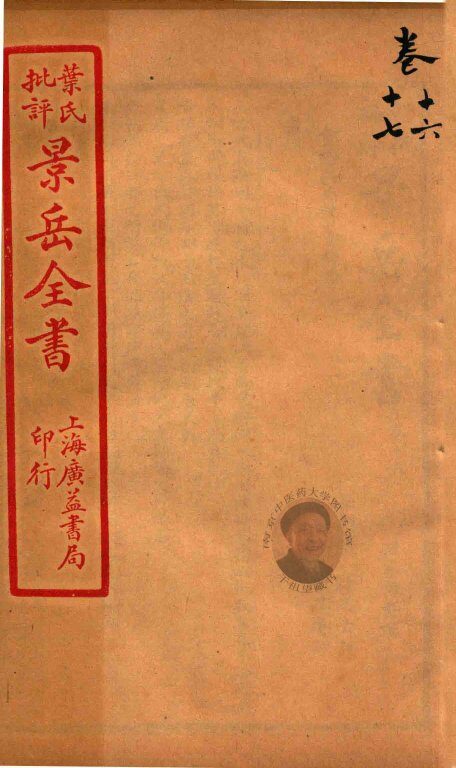 卷十六
十七
葉氏
批評
景岳全書
上海廣益書局
印行
南京中医药大学图书馆
干祖望藏书